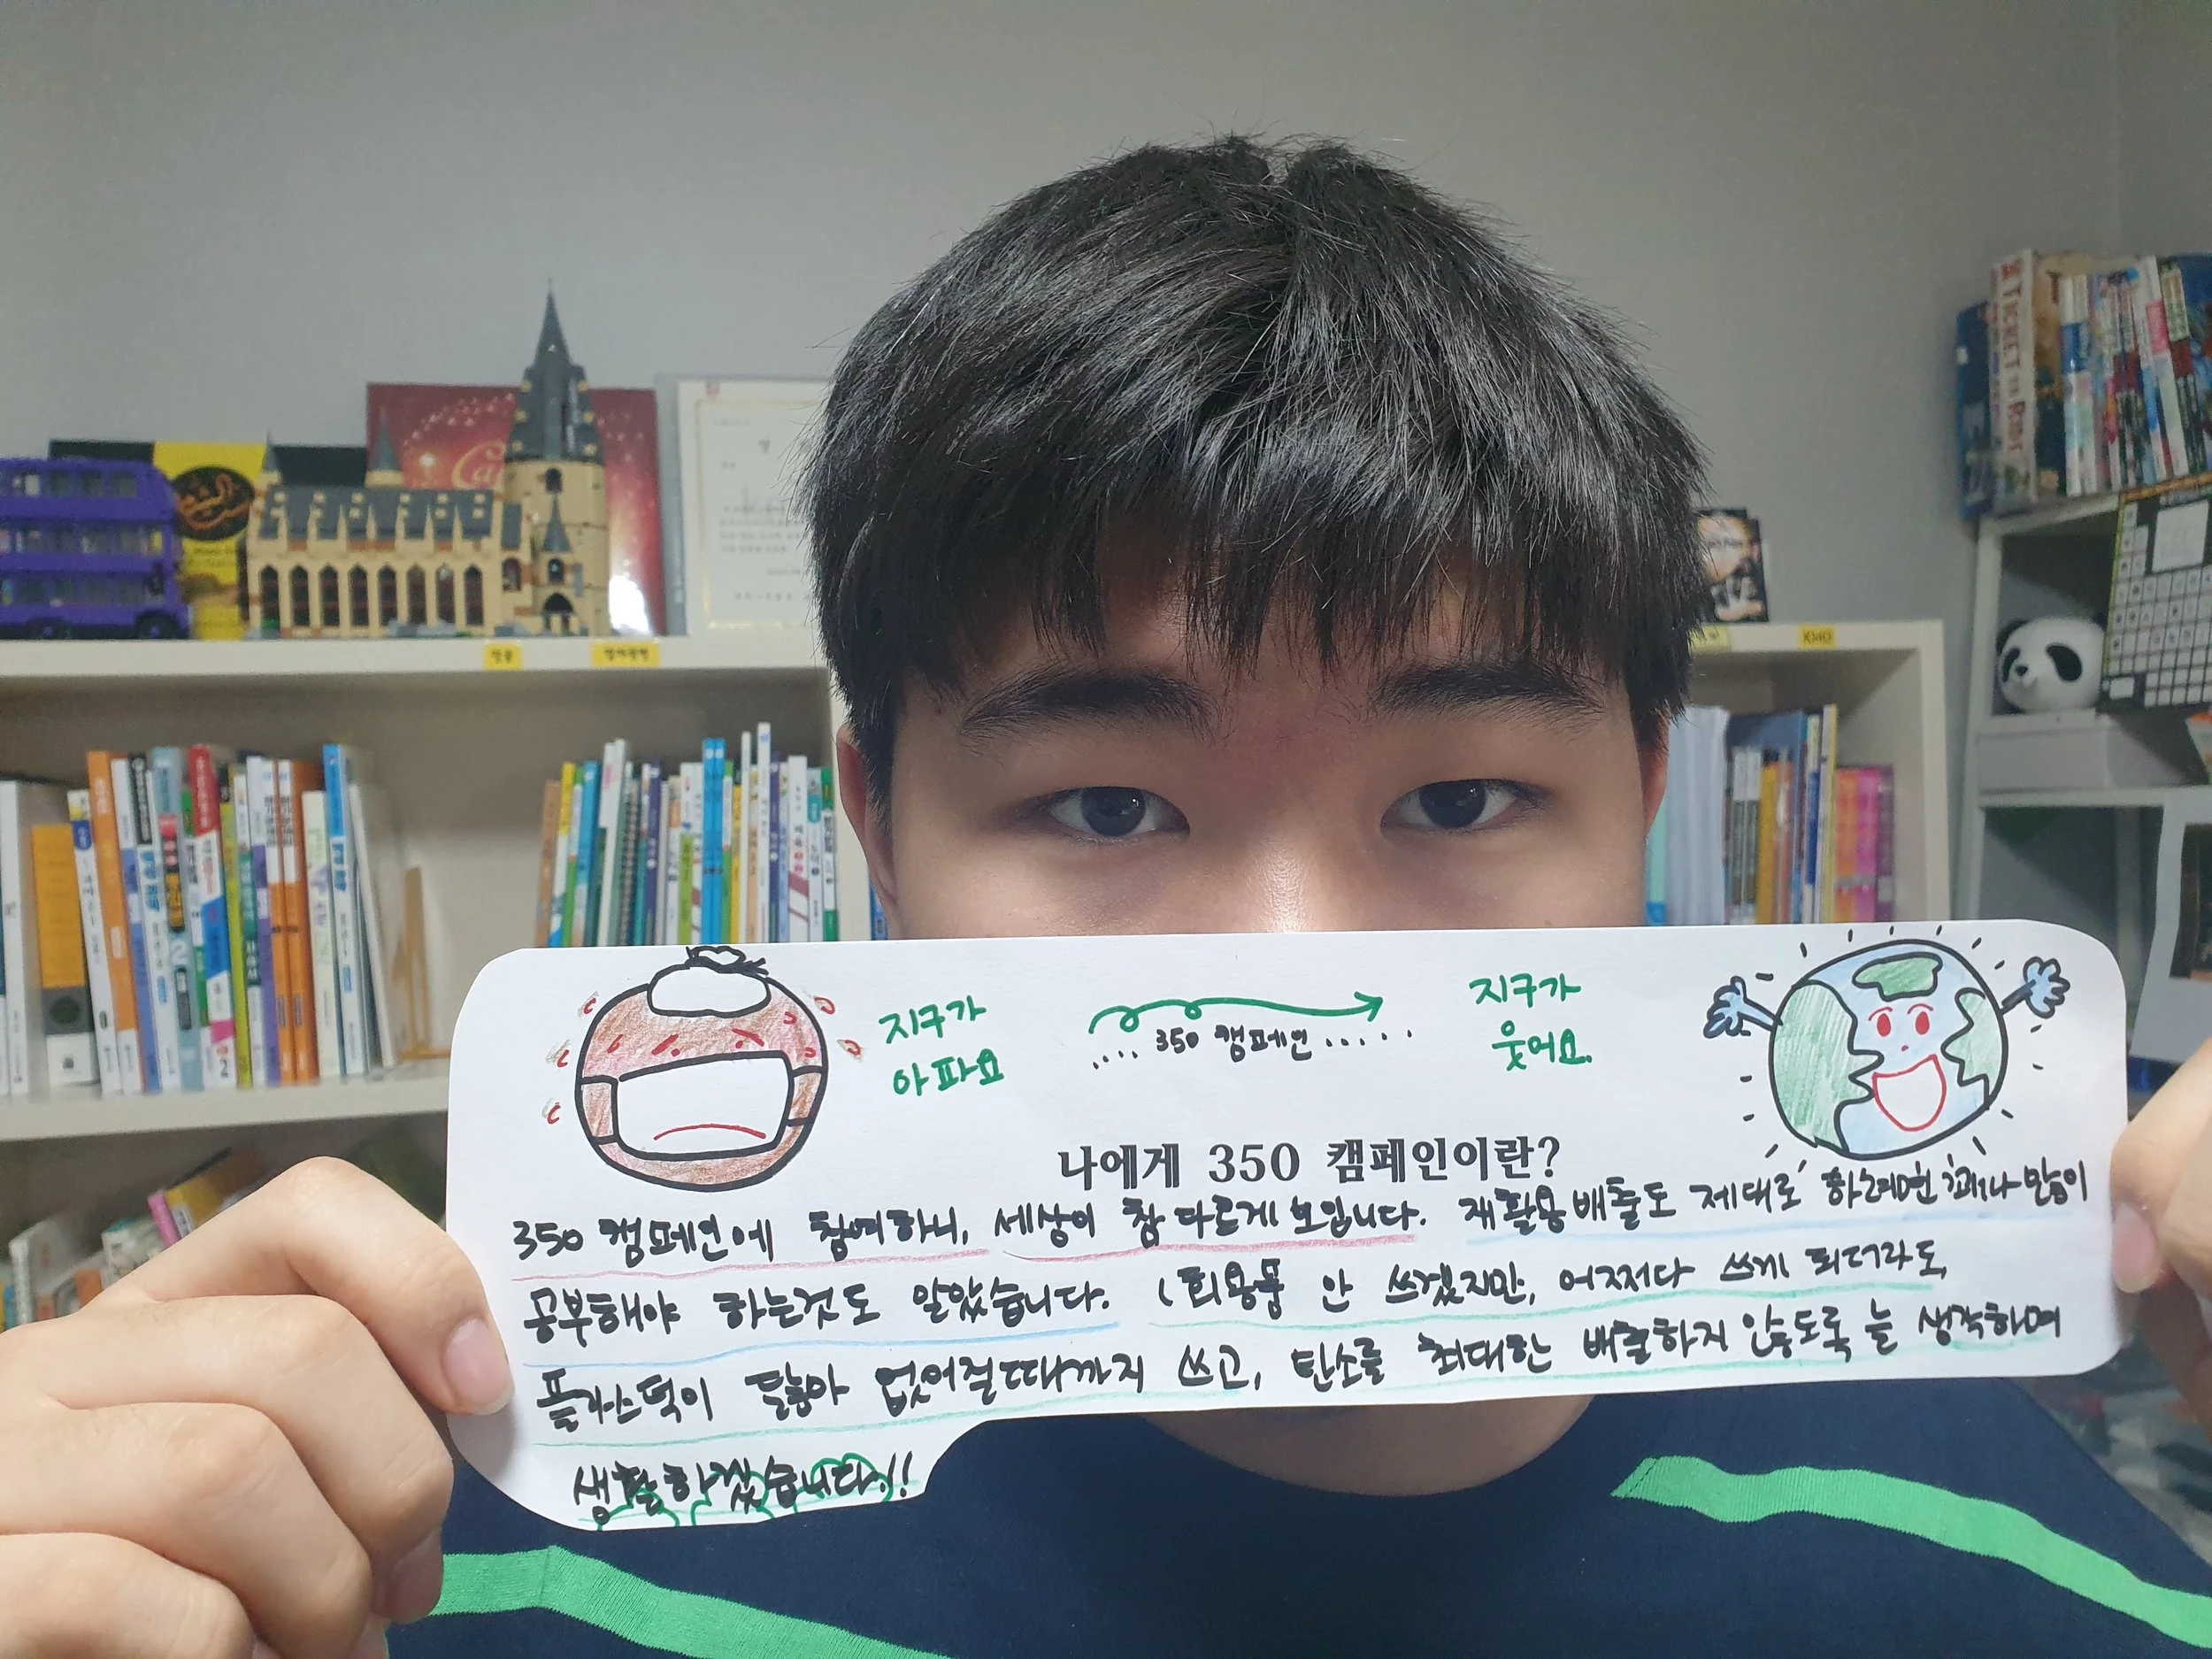 지구가
아파요
350 캠페인
지구가
웃어요.
나에게 350 캠페인이란?
350 캠페인에 참여하니, 세상이 참 다르게 보입니다. 재활용 배출도 제대로 하려면 꽤나 많이
공부해야 하는것도 알았습니다. 1회용품 안 쓰겠지만, 어쩌다 쓰게 되더라도
플라스틱이 닳아 없어질때까지 쓰고, 탄소를 최대한 배출하지 않도록 늘 생각하며
생활하겠습니다!!
TICKET TO RIDE